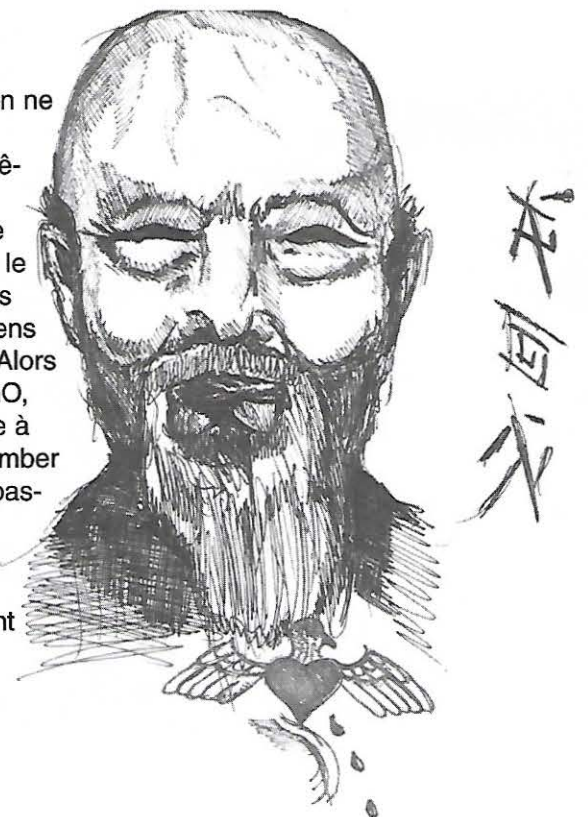 n ne
ê-
e
le
s
ens
Alors
O,
e à
mber
pas-
nt